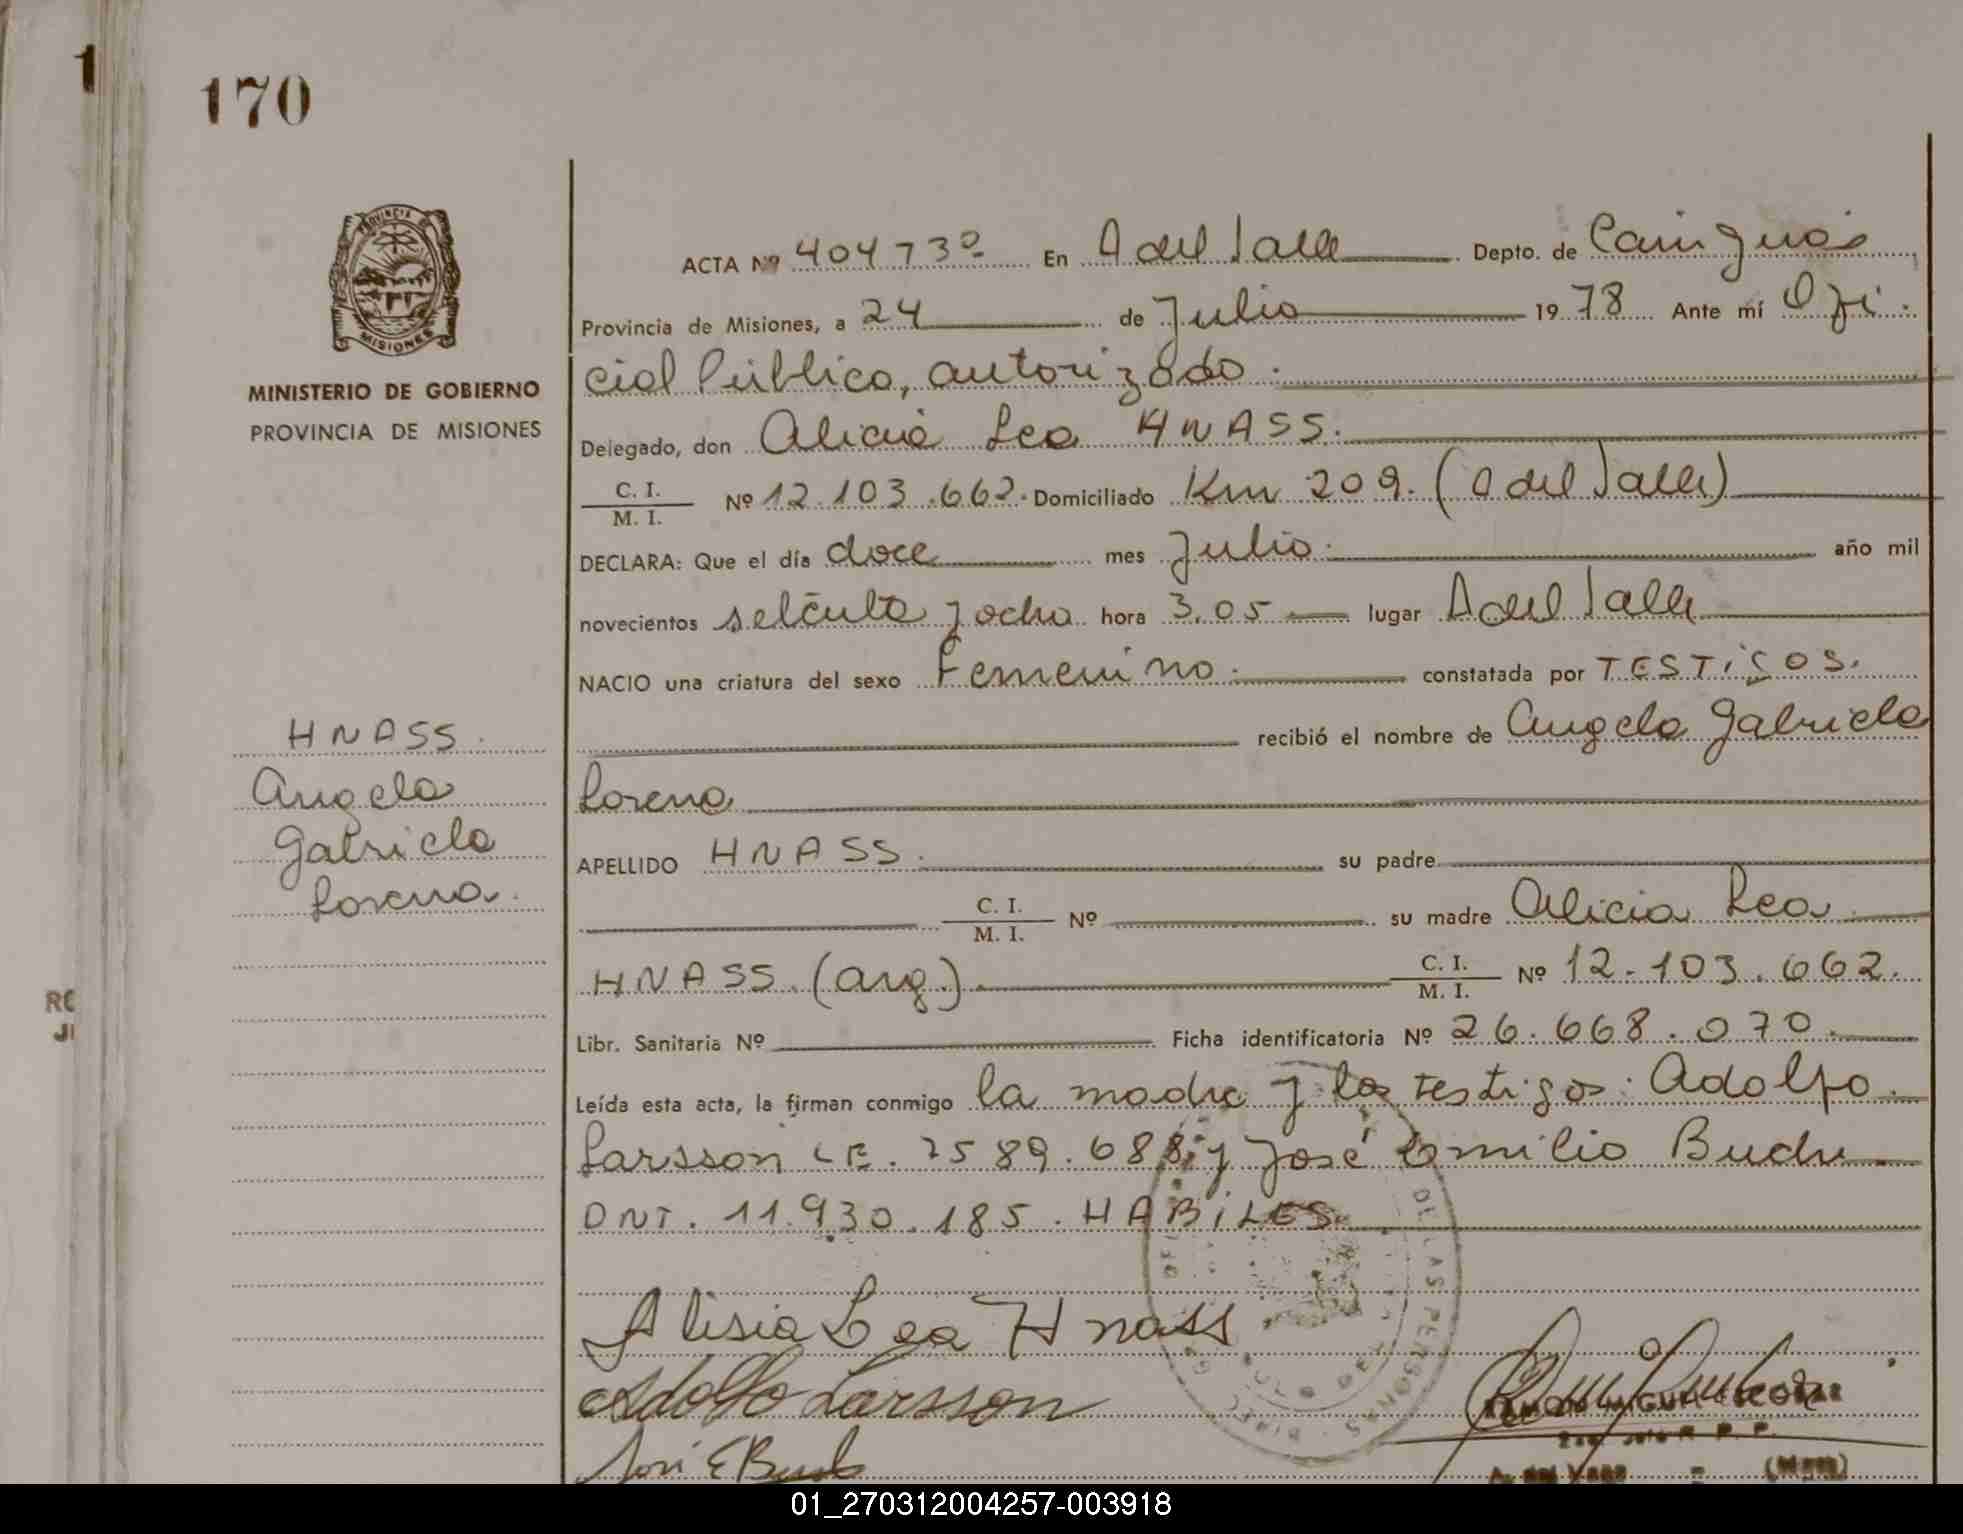 1
170
PROVINCIA DE
MISIONES
MINISTERIO DE GOBIERNO
PROVINCIA DE MISIONES
ACTA Nº 404 73º En A del Valle Depto. de Cainguás
Provincia de Misiones, a 24 de Julio 1978 Ante mí Ofi-
cial Público, autorizado.
Delegado, don Alicia Lea HNASS.
C. I.
M. I. Nº 12.103.662. Domiciliado Km 209. (A del Valle)
DECLARA: Que el día doce mes Julio. año mil
novecientos setenta y ocho hora 3.05 lugar A del Valle
NACIO una criatura del sexo Femenino. constatada por TESTIGOS.
recibió el nombre de Angela Gabriela
Lorena
APELLIDO HNASS. su padre
C. I.
M. I. Nº su madre Alicia Lea
HNASS. (arg.) C. I.
M. I. Nº 12.103.662.
Libr. Sanitaria Nº Ficha identificatoria Nº 26.668.070.
Leída esta acta, la firman conmigo la madre y los testigos: Adolfo
Larsson LE. 7589.688; y José Emilio Buch
DNI. 11.930.185. HABILES.
HNASS.
Angela
Gabriela
Lorena.
RC
JI
DE LAS PERSONAS
Alisia Lea Hnass
Adolfo Larsson
José E Buch
(Mnes)
01_270312004257-003918